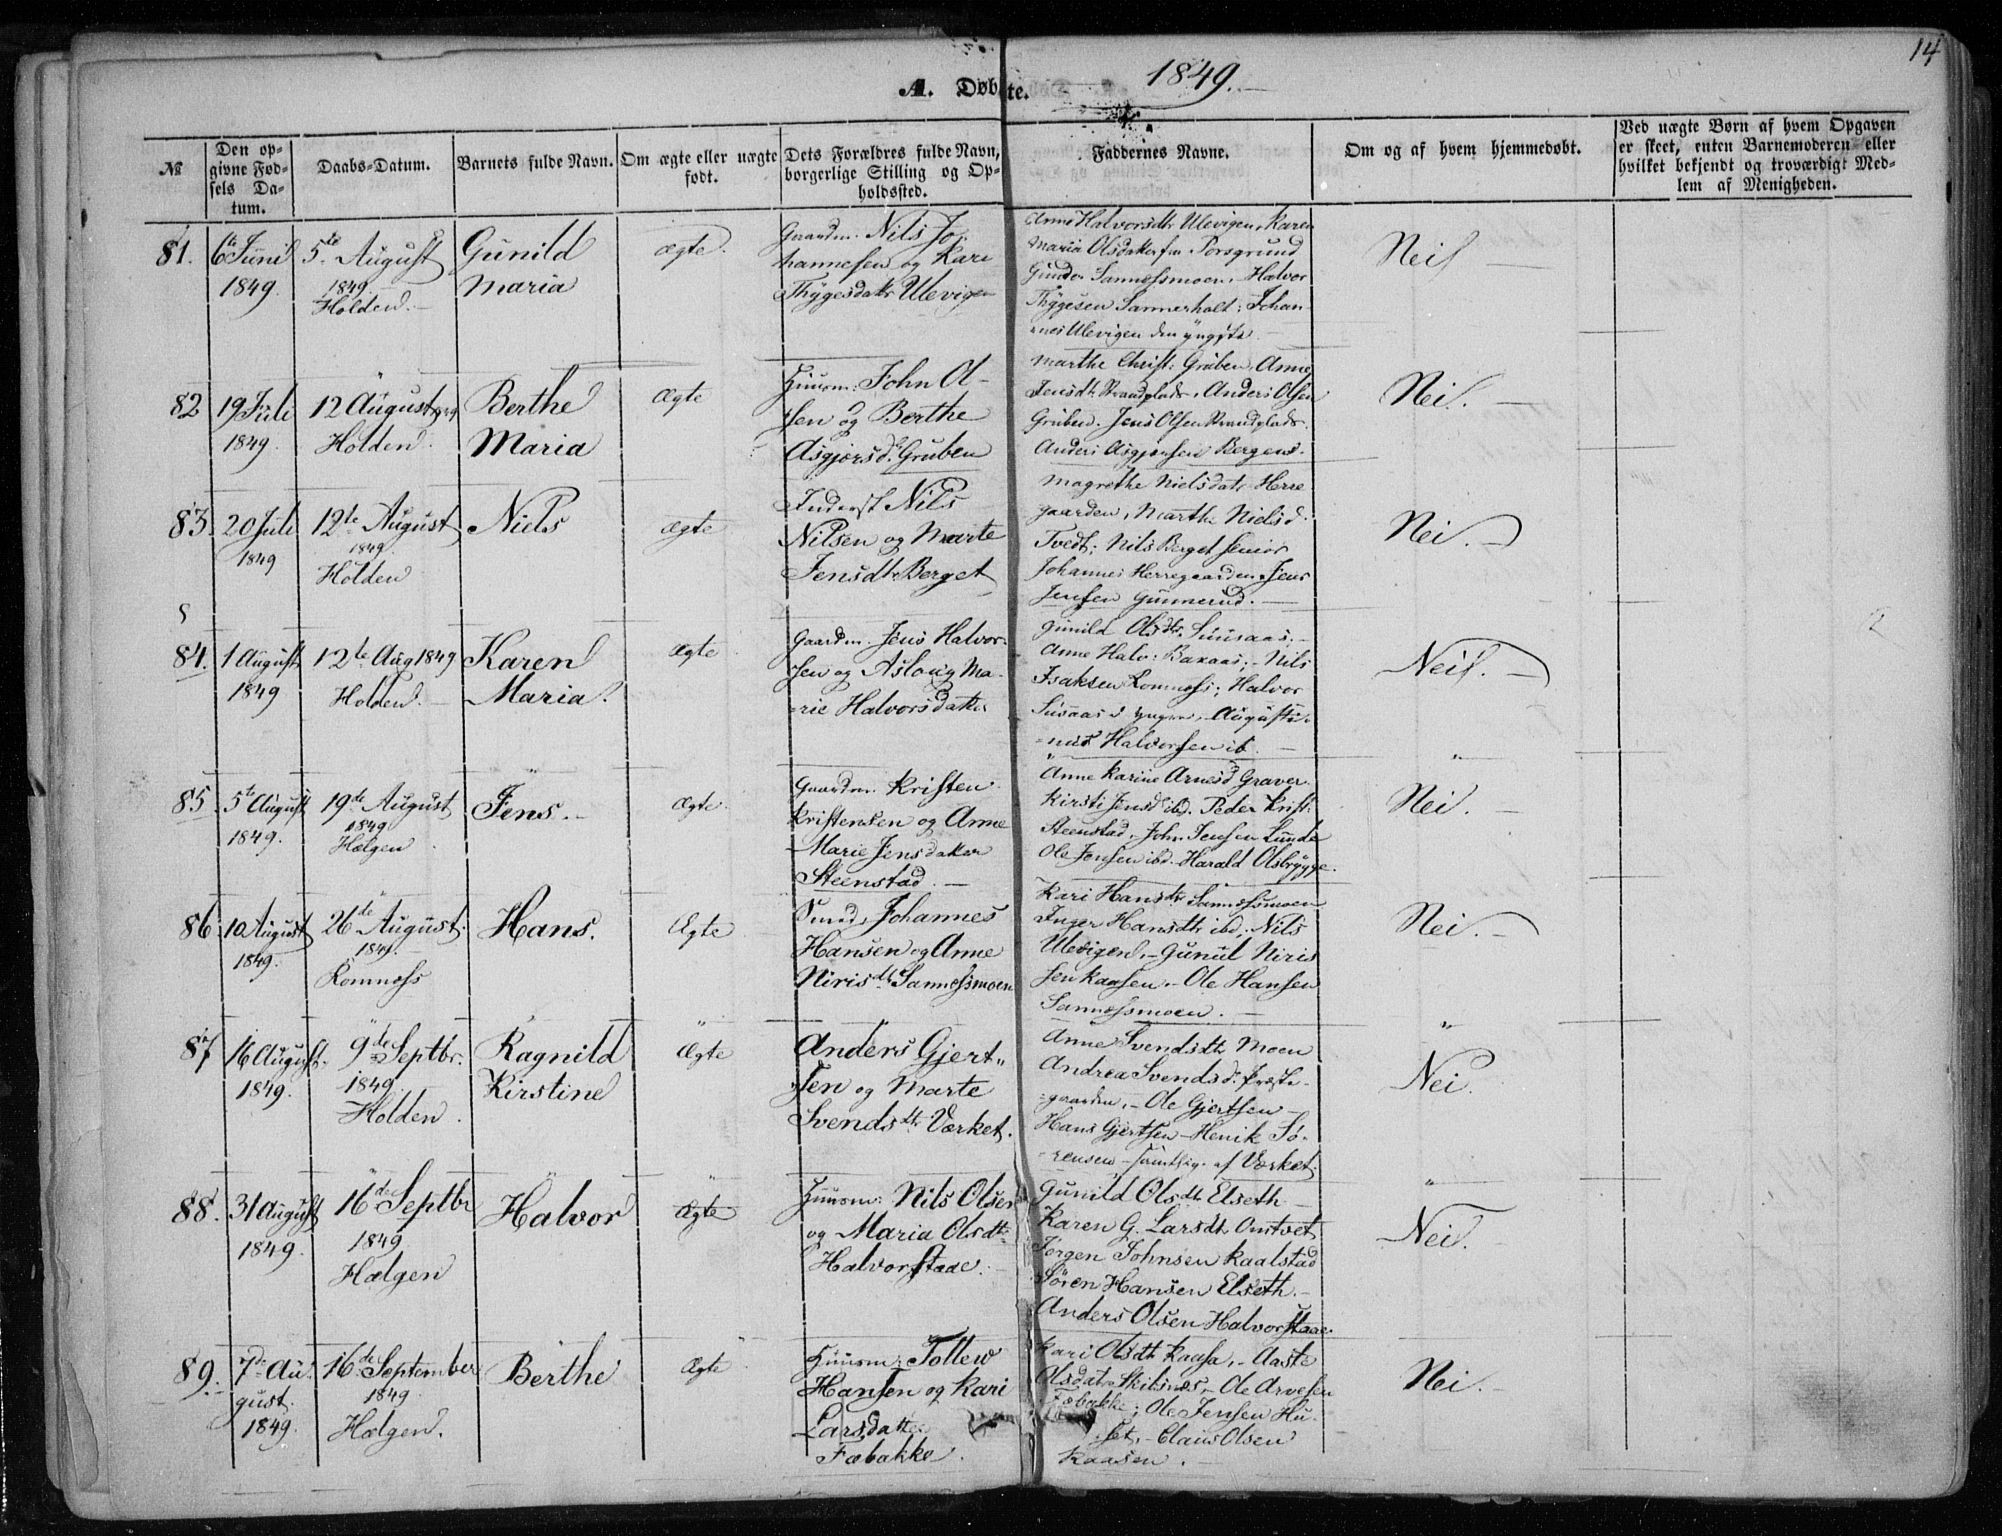 14
A. Døbte.
1849.
№
Den op-
givne Fød-
sels Da-
tum.
Daabs-Datum.
Barnets fulde Navn.
Om ægte eller uægte
født.
Dets Forældres fulde Navn,
borgerlige Stilling og Op-
holdssted.
Faddernes Navne.
Om og af hvem hjemmedøbt.
Ved uægte Børn af hvem Opgaven
er skeet, enten Barnemoderen eller
hvilket bekjendt og troværdigt Med-
lem af Menigheden.
81.
6te Juni
1849.
5te August
1849.
Holden.
Gunild
Maria
ægte.
Gaardm. Nils Jo-
hannesen og Kari
Thygesdatr Ulevigen
Anne Halvorsdtr Ulevigen, Karen
Maria Olsdatter fra Porsgrund
Gunder Sannessmoen, Halvor
Thygesen Sannerholt; Johan-
nes Ulevigen den yngste
Nei
82
19 Juli
1849.
12 August 1849
Holden.
Berthe
Maria
Ægte
Huusm: John Ol-
sen og Berthe
Asgjersd. Gruben
Marthe Christ: Gruben, Anne
Jensdtr Strandplads, Anders Olsen
Gruben. Jens Olsen Strandplads.
Anders Asgjersen Bergend.
Nei.
83.
20 Juli
1849
12te August
1849.
Holden
Niels
ægte
Inderst Nils
Nilsen og Marte
Jensdtr Berget
Magrethe Nielsdatr Herre
gaarden, Marthe Nielsd.
Tvedt; Nils Berget senior
Johannes Herregaarden, Jens
Jensen Gunnerud.
Nei.
84.
1 August
1849
12te Aug 1849
Holden.
Karen
Maria.
Ægte
Gaardm. Jens Halvor-
sen og Aslaug Ma-
rie Halvorsdatter
Gunild Olsdtr. Suusaas.
Anne Halv: Baxaas; Nils
Isaksen Romnæss; Halvor
Susaas d yngre, Augusti-
nus Halvorsen ib.
Nei.
85.
5te August
1849.
19de August
1849
Hælgen
Jens.
Ægte
Gaardm. Kristen
Kristensen og Anne
Marie Jensdatter
Steenstad.
Anne Karine Arnesd Graver.
Kirsti Jensd ibd. Peder Krist:
Steenstad, John Jensen Lunde
Ole Jensen ibd. Harald Olsbrygge.
Nei.
86.
10 August
1849.
26de August.
1849.
Romnæss
Hans.
Ægte
Smed, Johannes
Hansen og Anne
Nirisdtr Sannessmoen
Kari Hansdtr Sannessmoen
Inger Hansdtr ibd; Nils
Ulevigen, Gunul Niris
sen Kaasen. Ole Hansen
Sannessmoen.
Nei.
87
16 August.
1849.
9de Septbr.
1849.
Holden.
Ragnild
Kirstine
Ægte
Anders Gjert-
sen og Marte
Svendsdtr Værket.
Anne Svendsdtr Moen
Andrea Svendsd. Præste-
gaarden, Ole Gjertsen
Hans Gjertsen Henrik Sø-
rensen samtlige af Værket.
Nei.
88.
31 August
1849.
16de Septbr
1849
Hælgen
Halvor
Ægte
Huusm: Nils Olsen
og Maria Olsdtr
Halvorstaae.
Gunild Olsdtr Elseth
Karen G. Larsdtr Omtvet
Jørgen Johnsen Kaalstad
Søren Hansen Elseth.
Anders Olsen Halvorstaae.
Nei.
89.
7de Au-
gust.
1849.
16de September
1849
Hælgen.
Berthe
Ægte
Huusm: Tollev
Hansen og Kari
Larsdatter
Fæbakke.
Kari Olsdtr Kaasa, Aaste
Olsdatr Skilsnæs, Ole Arvesen
Fæbakke; Ole Jensen Hu-
set, Claus Olsen
Kaasen.
Nei.